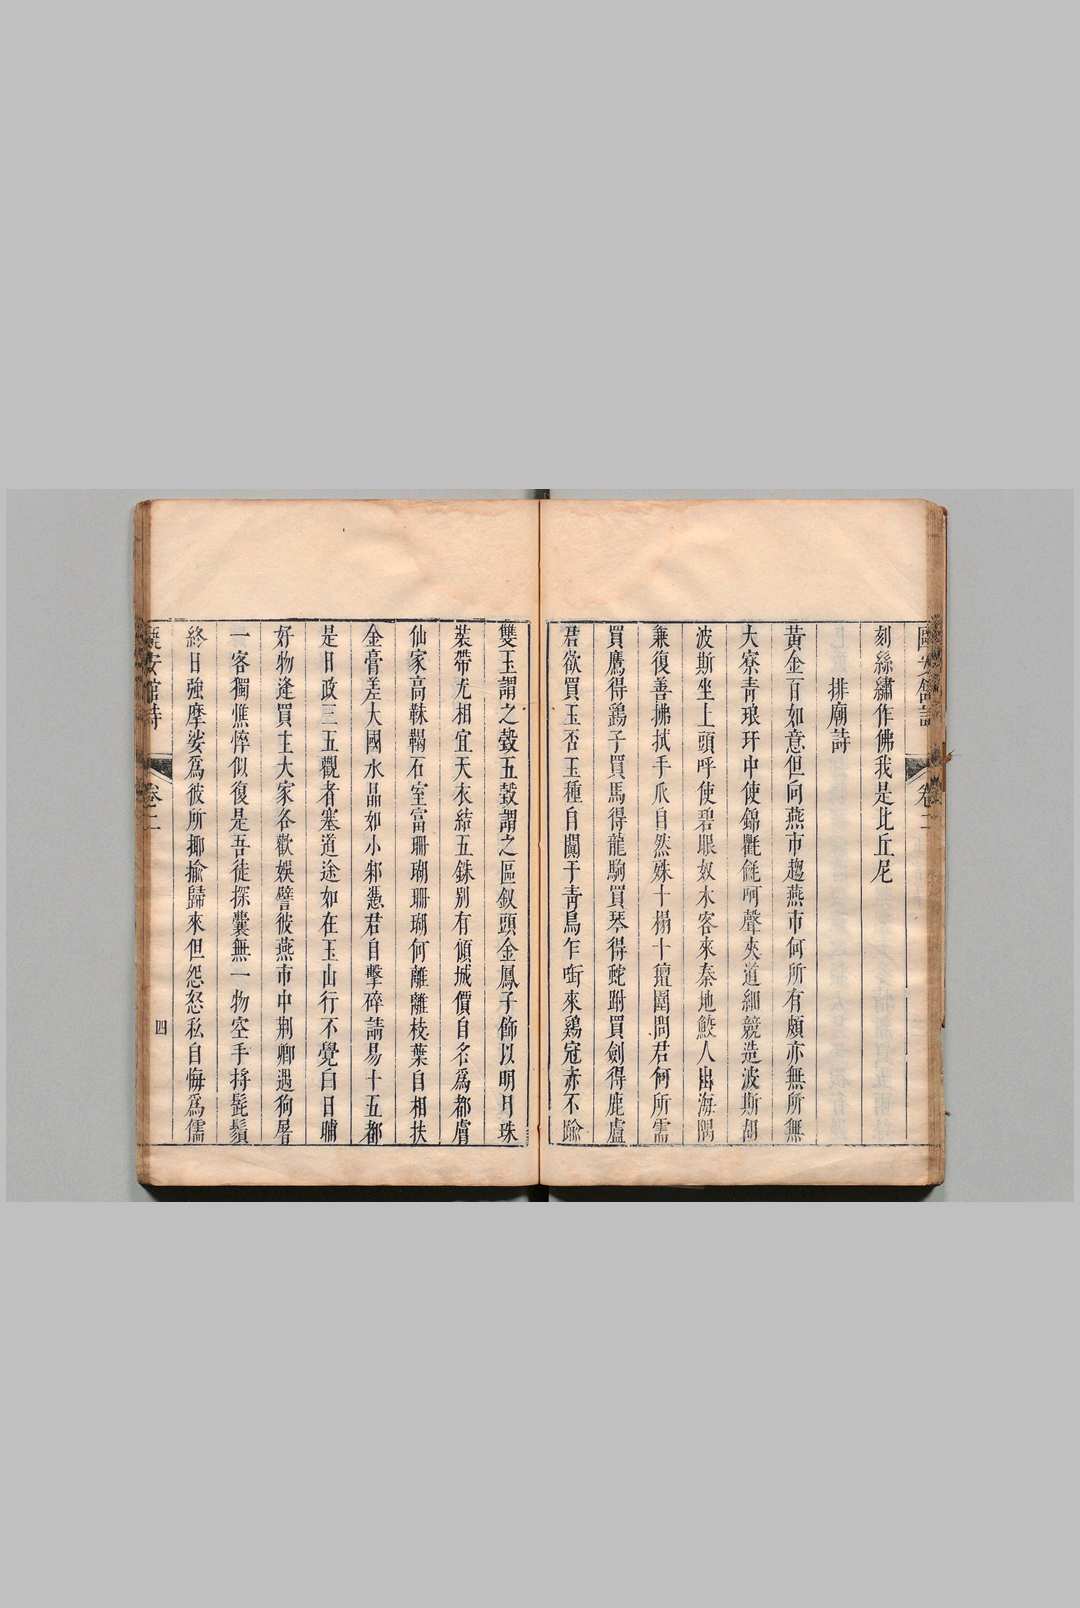 刻絲繡作佛我是比丘尼
排廟詩
黃金百如意但向燕市趨燕市何所有頗亦無所無
大寮靑琅玕中使錦氍毹呵聲夾道細競造波斯胡
波斯坐上頭呼使碧眼奴木客來秦地鮫人出海隅
兼復善拂拭手爪自然殊十榻十㩜圍問君何所需
買鷹得鷂子買馬得龍駒買琴得蛇跗買劍得鹿盧
君欲買玉否玉種自闐于靑鳥乍啣來鷄冠赤不踰
雙玉謂之瑴五瑴謂之區釵頭金鳳子飾以明月珠
裝帶尤相宜天衣結五銖別有傾城價自名爲都膚
仙家高靺鞨石室富珊瑚珊瑚何離離枝葉自相扶
金膏差大國水晶如小邾慿君自擊碎請易十五都
是日政三五觀者塞道途如在玉山行不覺白日晡
好物逢買主大家各歡娛譬彼燕市中荆卿遇狗屠
一客獨憔悴似復是吾徒探囊無一物空手捋髭鬚
終日強摩娑爲彼所揶揄歸來但怨怒私自悔爲儒
安館詩
卷二
四